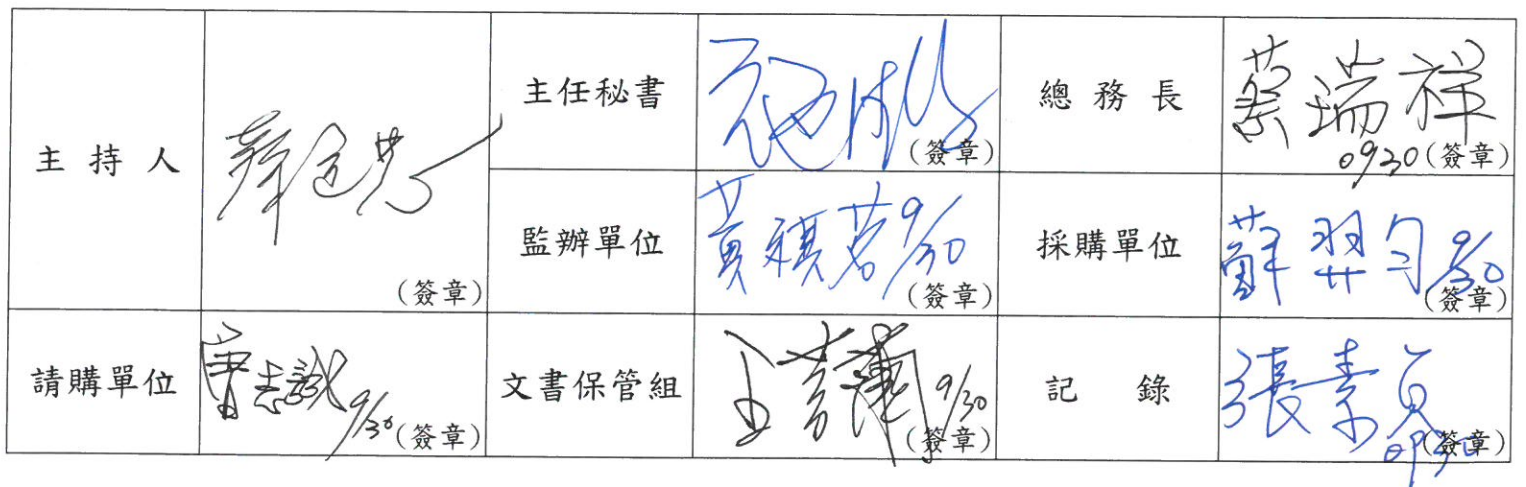 主持人 (簽章)
主任秘書 (簽章)
總務長 蔡瑞祥 0930 (簽章)
監辦單位 黃祺茗 9/30 (簽章)
採購單位 蘇羿勻 9/30 (簽章)
請購單位 9/30 (簽章)
文書保管組 9/30 (簽章)
記錄 張素貞 0930 (簽章)